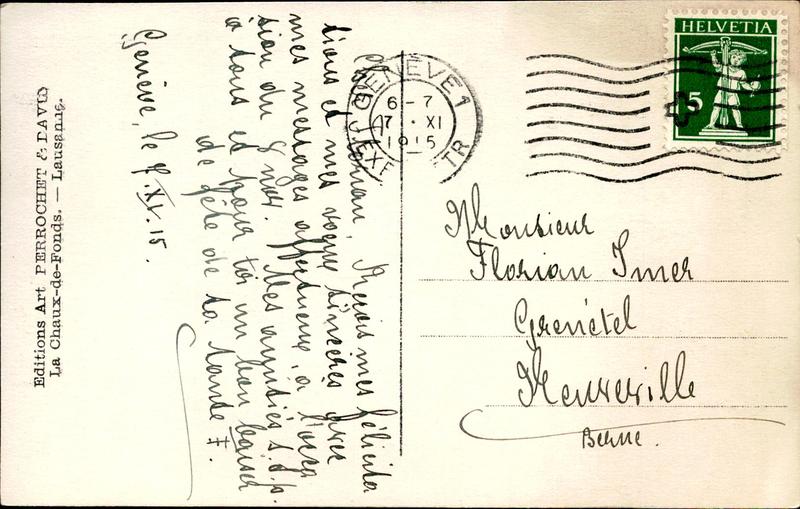 Editions Art PERROCHET & DAVID
La Chaux-de-Fonds. — Lausanne.
Genève, le 7. XI. 15.
Cher Florian, Reçois mes félicita
tions et mes voeux sincères avec
mes messages affectueux, à l'occa
sion du 8 nov. Mes amitiés s.t.p.
à tous et pour toi un bon baiser
de fête de ta tante
GENÈVE 1
6-7
7 · XI
1915
HELVETIA
5
Monsieur
Florian Imer
Grenétel
Neuveville
Berne.